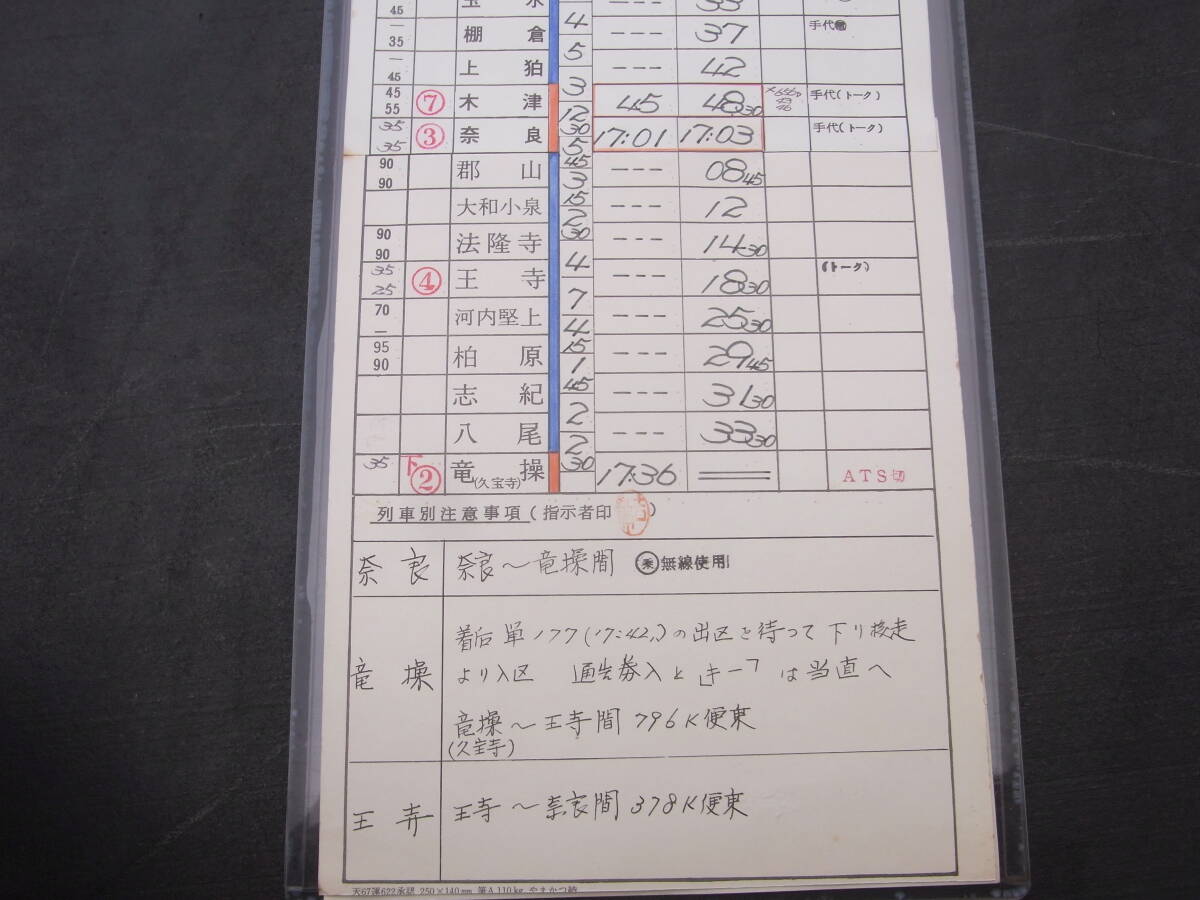 45 玉 水 33
4
— 35 棚 倉 --- 37 手代
5
— 45 上 狛 --- 42
3
45 55 ⑦ 木 津 45 48 30 手代(トーク)
12 30
35 35 ③ 奈 良 17:01 17:03 手代(トーク)
5 45
90 90 郡 山 --- 08 45
3 15
大和小泉 --- 12
2 30
90 90 法隆寺 --- 14 30
4
35 25 ④ 王 寺 --- 18 30 (トーク)
7
70 — 河内堅上 --- 25 30
4 15
95 90 柏 原 --- 29 45
1 45
志 紀 --- 31 30
2
八 尾 --- 33 30
2 30
35 下② 竜 操 17:36 ATS切
(久宝寺)
列車別注意事項(指示者印 )
奈 良 奈良〜竜操間 ㊍無線使用
竜 操 着后 単177(17:42)の出区を待つて 下り
より入区 通告券入 と は当直へ
竜操〜王寺間 796K便乗
(久宝寺)
王 寺 王寺〜奈良間 378K便乗
天67運622承認 250×140mm 筆A110kg やまかつ納